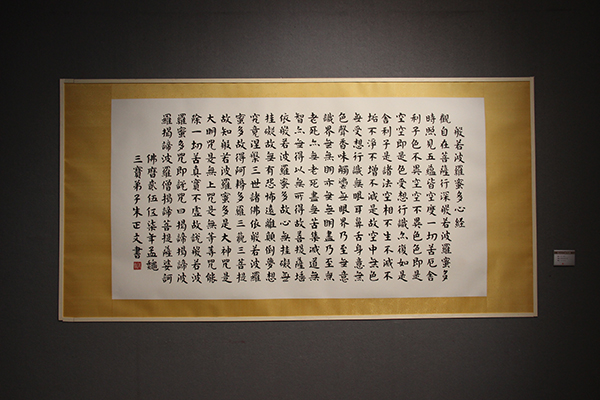 般若波羅蜜多心經
觀自在菩薩行深般若波羅蜜多
時照見五蘊皆空度一切苦厄舍
利子色不異空空不異色色即是
空空即是色受想行識亦復如是
舍利子是諸法空相不生不滅不
垢不淨不增不減是故空中無色
無受想行識無眼耳鼻舌身意無
色聲香味觸法無眼界乃至無意
識界無無明亦無無明盡乃至無
老死亦無老死盡無苦集滅道無
智亦無得以無所得故菩提薩埵
依般若波羅蜜多故心無挂礙無
挂礙故無有恐怖遠離顛倒夢想
究竟涅槃三世諸佛依般若波羅
蜜多故得阿耨多羅三藐三菩提
故知般若波羅蜜多是大神咒是
大明咒是無上咒是無等等咒能
除一切苦真實不虛故說般若波
羅蜜多咒即說咒曰揭諦揭諦波
羅揭諦波羅僧揭諦菩提薩婆訶
佛曆貳伍伍柒年孟穐
三寶弟子朱正文書